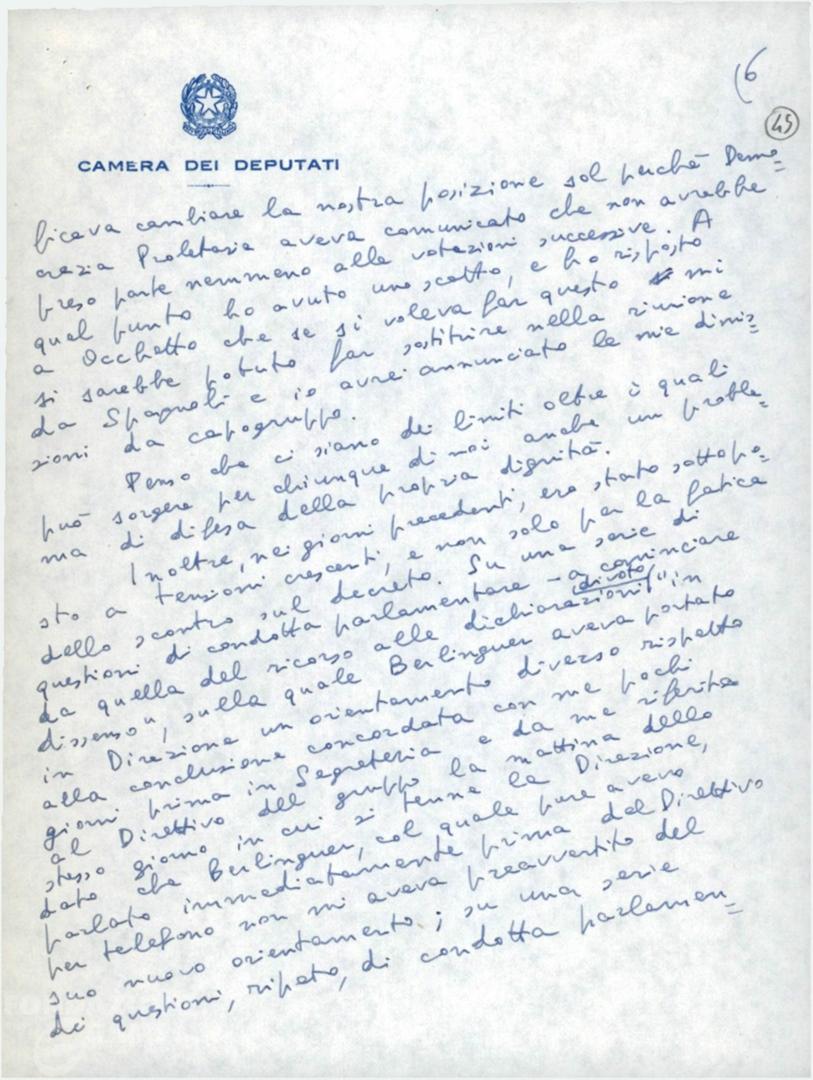 (6
45
CAMERA DEI DEPUTATI
ficava cambiare la nostra posizione sol perché Demo=
crazia Proletaria aveva comunicato che non avrebbe
preso parte nemmeno alle votazioni successive. A
quel punto ho avuto uno scatto, e ho risposto
a Occhetto che se si voleva far questo mi
si sarebbe potuto far sostituire nella riunione
da Spagnoli e io avrei annunciato le mie dimis=
sioni da capogruppo.
Penso che ci siano dei limiti oltre i quali
può sorgere per chiunque di noi anche un proble=
ma di difesa della propria dignità.
Inoltre, nei giorni precedenti, ero stato sottopo=
sto a tensioni crescenti, e non solo per la fatica
dello scontro sul decreto. Su una serie di
questioni di condotta parlamentare – a cominciare
da quella del ricorso alle dichiarazioni di voto "in
dissenso", sulla quale Berlinguer aveva portato
in Direzione un orientamento diverso rispetto
alla conclusione concordata con me pochi
giorni prima in Segreteria e da me riferita
al Direttivo del gruppo la mattina dello
stesso giorno in cui si tenne la Direzione,
dato che Berlinguer, col quale pure avevo
parlato immediatamente prima del Direttivo
per telefono non mi aveva preavvertito del
suo nuovo orientamento; su una serie
di questioni, ripeto, di condotta parlamen=